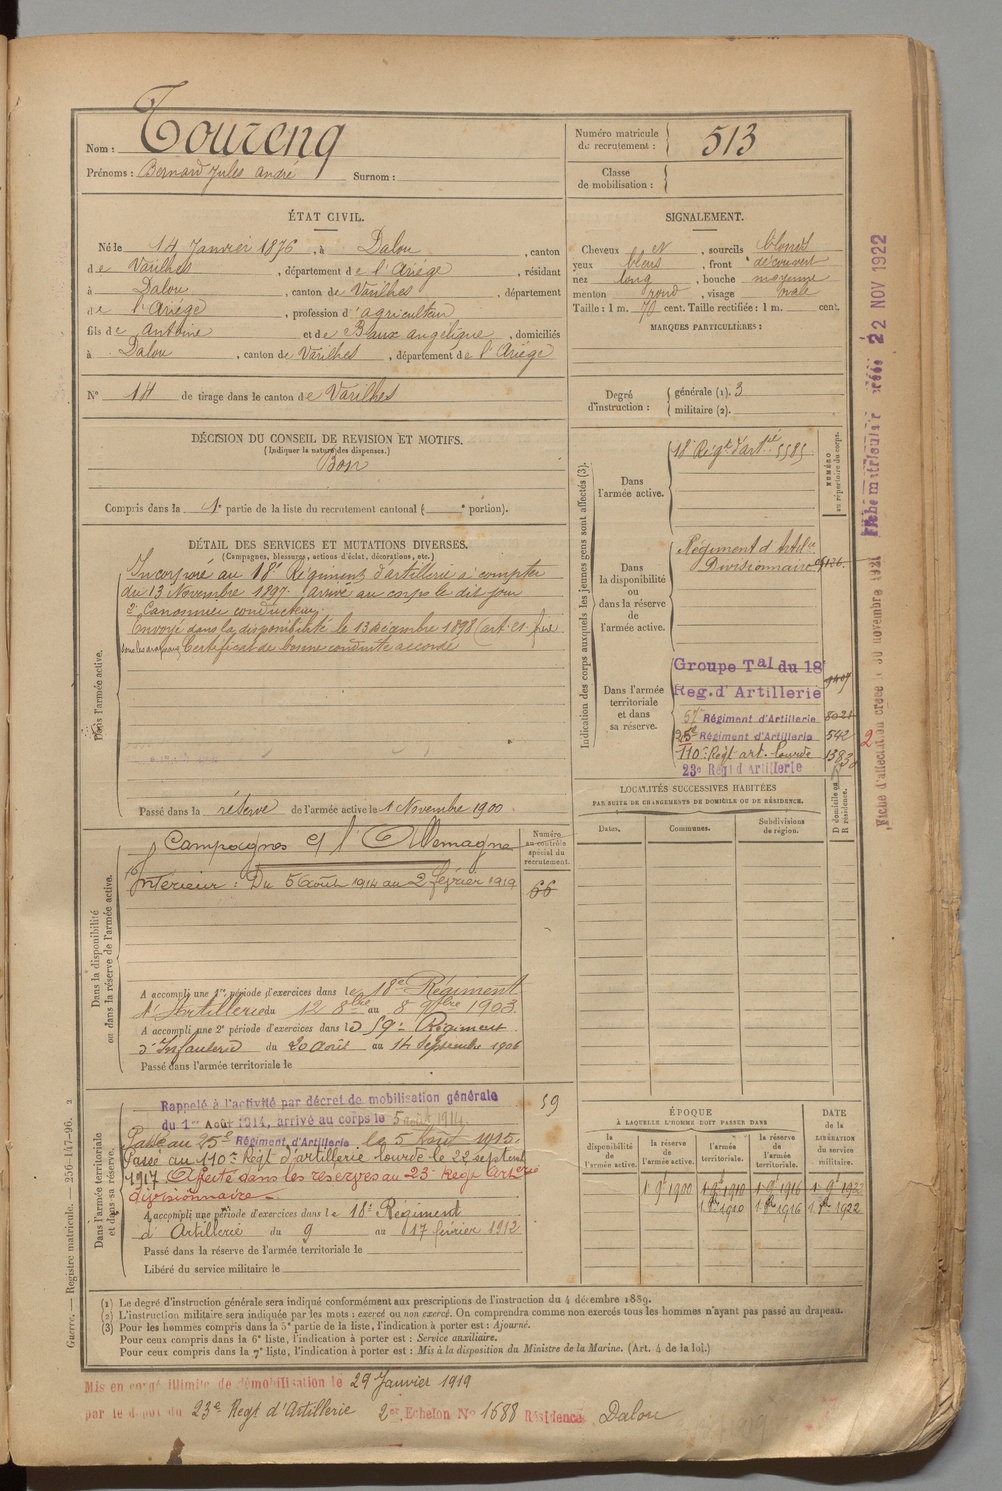 Nom : Toureng
Prénoms : Bernard Jules André Surnom :
Numéro matricule de recrutement : 513
Classe de mobilisation :
ÉTAT CIVIL.
Né le 14 Janvier 1876, à Dalou, canton
de Varilhes, département de l'Ariège, résidant
à Dalou, canton de Varilhes, département
de l'Ariège, profession d'agriculteur
fils de Antoine et de Baux angélique, domiciliés
à Dalou, canton de Varilhes, département de l'Ariège
N° 14 de tirage dans le canton de Varilhes
SIGNALEMENT.
Cheveux et, sourcils blonds
yeux bleus, front découvert
nez long, bouche moyenne
menton rond, visage ovale
Taille : 1 m. 70 cent. Taille rectifiée : 1 m. cent.
MARQUES PARTICULIÈRES :
Degré d'instruction : générale (1). 3
militaire (2).
DÉCISION DU CONSEIL DE REVISION ET MOTIFS.
(Indiquer la nature des dispenses.)
Bon
Compris dans la 1e partie de la liste du recrutement cantonal ( e portion).
DÉTAIL DES SERVICES ET MUTATIONS DIVERSES.
(Campagnes, blessures, actions d'éclat, décorations, etc.)
Dans l'armée active.
Incorporé au 18e Régiment d'artillerie à compter
du 13 Novembre 1897. Arrivé au corps le dit jour
2e Canonnier conducteur.
Envoyé dans la disponibilité le 13 décembre 1898 (art. 21.
Certificat de bonne conduite accordé
Passé dans la réserve de l'armée active le 1 Novembre 1900.
Dans la disponibilité ou dans la réserve de l'armée active.
Campagnes et l'Allemagne
Intérieur : Du 5 Août 1914 au 2 février 1919
Numéro au contrôle spécial du recrutement.
66
A accompli une 1re période d'exercices dans le 18e Régiment
d'Artillerie du 12 8bre au 8 9bre 1903.
A accompli une 2e période d'exercices dans le 59e Régiment
d'Infanterie du 20 août au 14 Septembre 1906
Passé dans l'armée territoriale le
Dans l'armée territoriale et dans sa réserve.
Rappelé à l'activité par décret de mobilisation générale
du 1er Août 1914, arrivé au corps le 5 août 1914.
59
Passé au 25e Régiment d'Artillerie le 5 Août 1915.
Passé au 110e Régt d'artillerie lourde le 22 septem
1917 Affecté dans les réserves au 23e Regt Arterie
divisionnaire
A accompli une période d'exercices dans le 18e Régiment
d'Artillerie du 9 au 17 février 1912
Passé dans la réserve de l'armée territoriale le
Libéré du service militaire le
Indication des corps auxquels les jeunes gens sont affectés (3).
NUMÉRO au répertoire du corps.
Dans l'armée active.
18e Régt d'artie 5585
Dans la disponibilité ou dans la réserve de l'armée active.
Régiment d'Artie
Divisionnaire
Dans l'armée territoriale et dans sa réserve.
Groupe Tal du 18e
Reg. d'Artillerie
57e Régiment d'Artillerie 8021
25e Régiment d'Artillerie 542
110e Regt art. lourde
23e Régt d'Artillerie
LOCALITÉS SUCCESSIVES HABITÉES
PAR SUITE DE CHANGEMENTS DE DOMICILE OU DE RÉSIDENCE.
Dates. Communes. Subdivisions de région. D domicile ou R résidence.
ÉPOQUE
À LAQUELLE L'HOMME DOIT PASSER DANS
DATE de la LIBÉRATION du service militaire.
la disponibilité de l'armée active. la réserve de l'armée active. l'armée territoriale. la réserve de l'armée territoriale.
1 9e 1900 1 9e 1910 1 9e 1916 1 9e 1922
1 8re 1910 1 8re 1916 1 8re 1922
(1) Le degré d'instruction générale sera indiqué conformément aux prescriptions de l'instruction du 4 décembre 1889.
(2) L'instruction militaire sera indiquée par les mots : exercé ou non exercé. On comprendra comme non exercés tous les hommes n'ayant pas passé au drapeau.
(3) Pour les hommes compris dans la 5e partie de la liste, l'indication à porter est : Ajourné.
Pour ceux compris dans la 6e liste, l'indication à porter est : Service auxiliaire.
Pour ceux compris dans la 7e liste, l'indication à porter est : Mis à la disposition du Ministre de la Marine. (Art. 4 de la loi.)
Guerre. — Registre matricule. — 256-147-96. 2
Mis en congé illimité de démobilisation le 29 Janvier 1919
par le dépôt du 23e Regt d'Artillerie 2er Echelon No 1688 Résidence Dalou
Fiche matriculaire créée 22 NOV 1922
Fiche d'affectation créée 30 novembre 1921